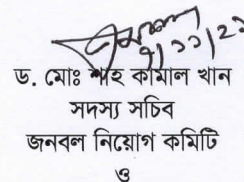 ড. মোঃ শাহ কামাল খান
সদস্য সচিব
জনবল নিয়োগ কমিটি
ও